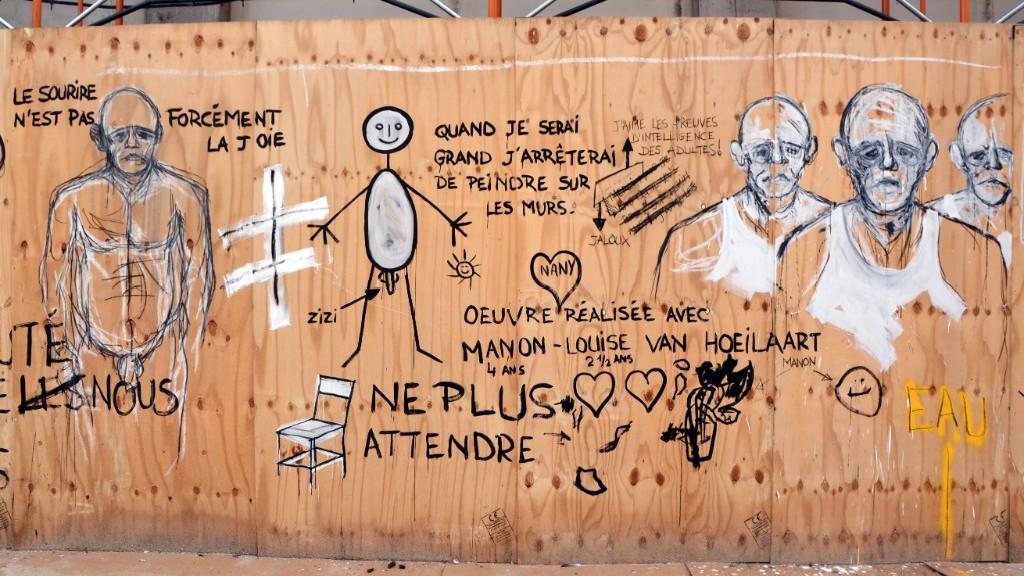 LE SOURIRE
N'EST PAS
FORCÉMENT
LA JOIE
QUAND JE SERAI
GRAND J'ARRÊTERAI
DE PEINDRE SUR
LES MURS.
J'AIME LES PREUVES
D'INTELLIGENCE
DES ADULTES!
JALOUX
NANY
ZIZI
OEUVRE RÉALISÉE AVEC
MANON-LOUISE VAN HOEILAART
4 ANS
2 1/2 ANS
MANON
UTÉ
NOUS
NE PLUS
ATTENDRE
EAU